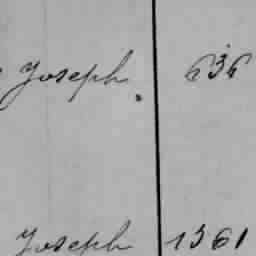 Joseph. 636
Joseph 1361